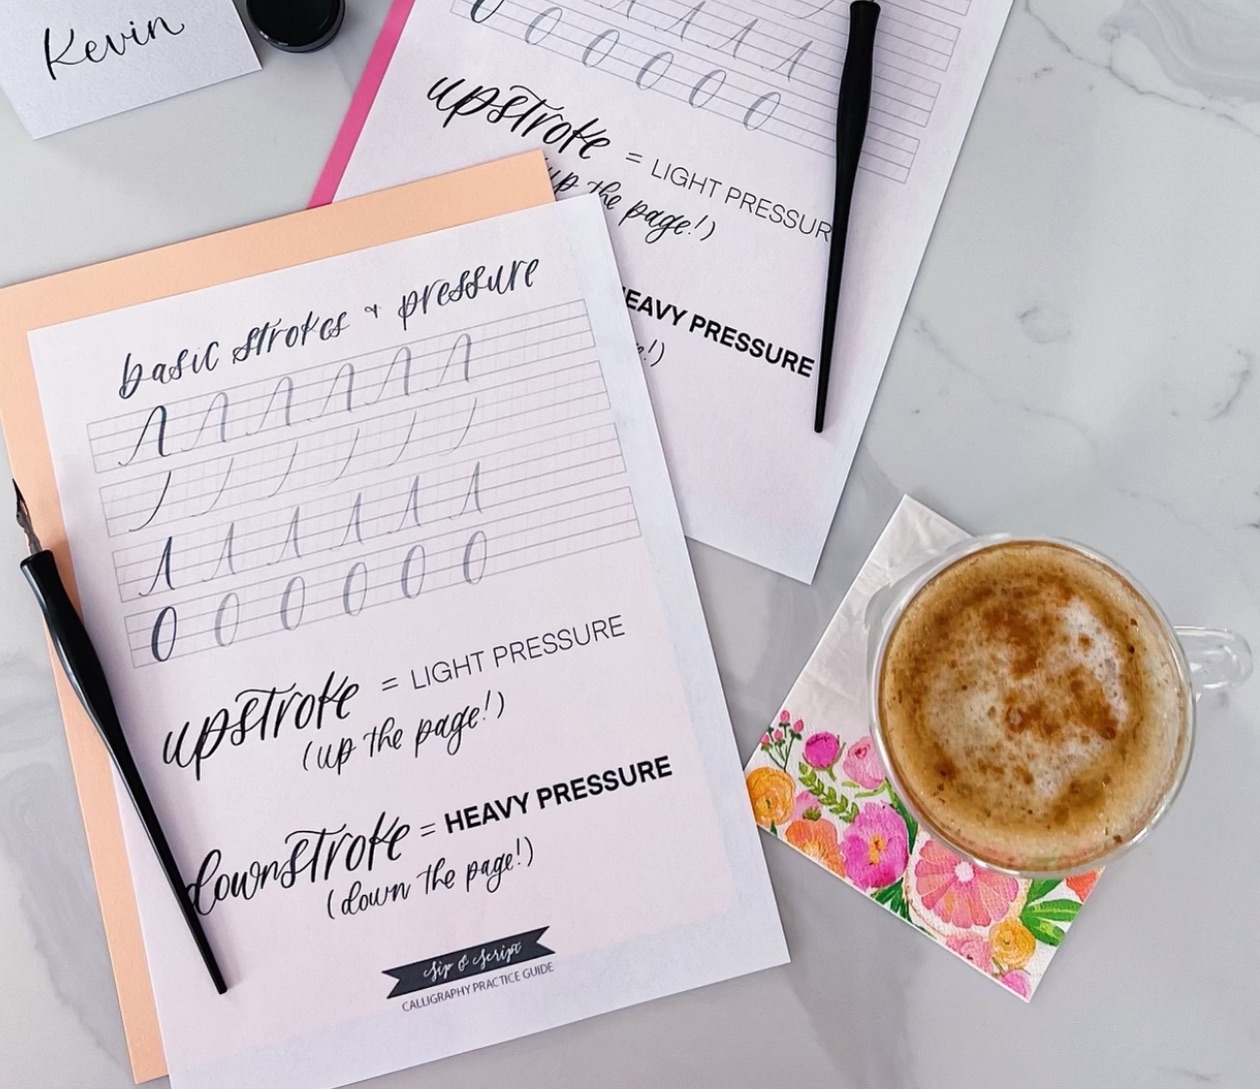 Kevin
upstroke = LIGHT PRESSUR
(up the page!)
HEAVY PRESSURE
basic strokes & pressure
upstroke = LIGHT PRESSURE
(up the page!)
downstroke = HEAVY PRESSURE
(down the page!)
Sip & Script
CALLIGRAPHY PRACTICE GUIDE